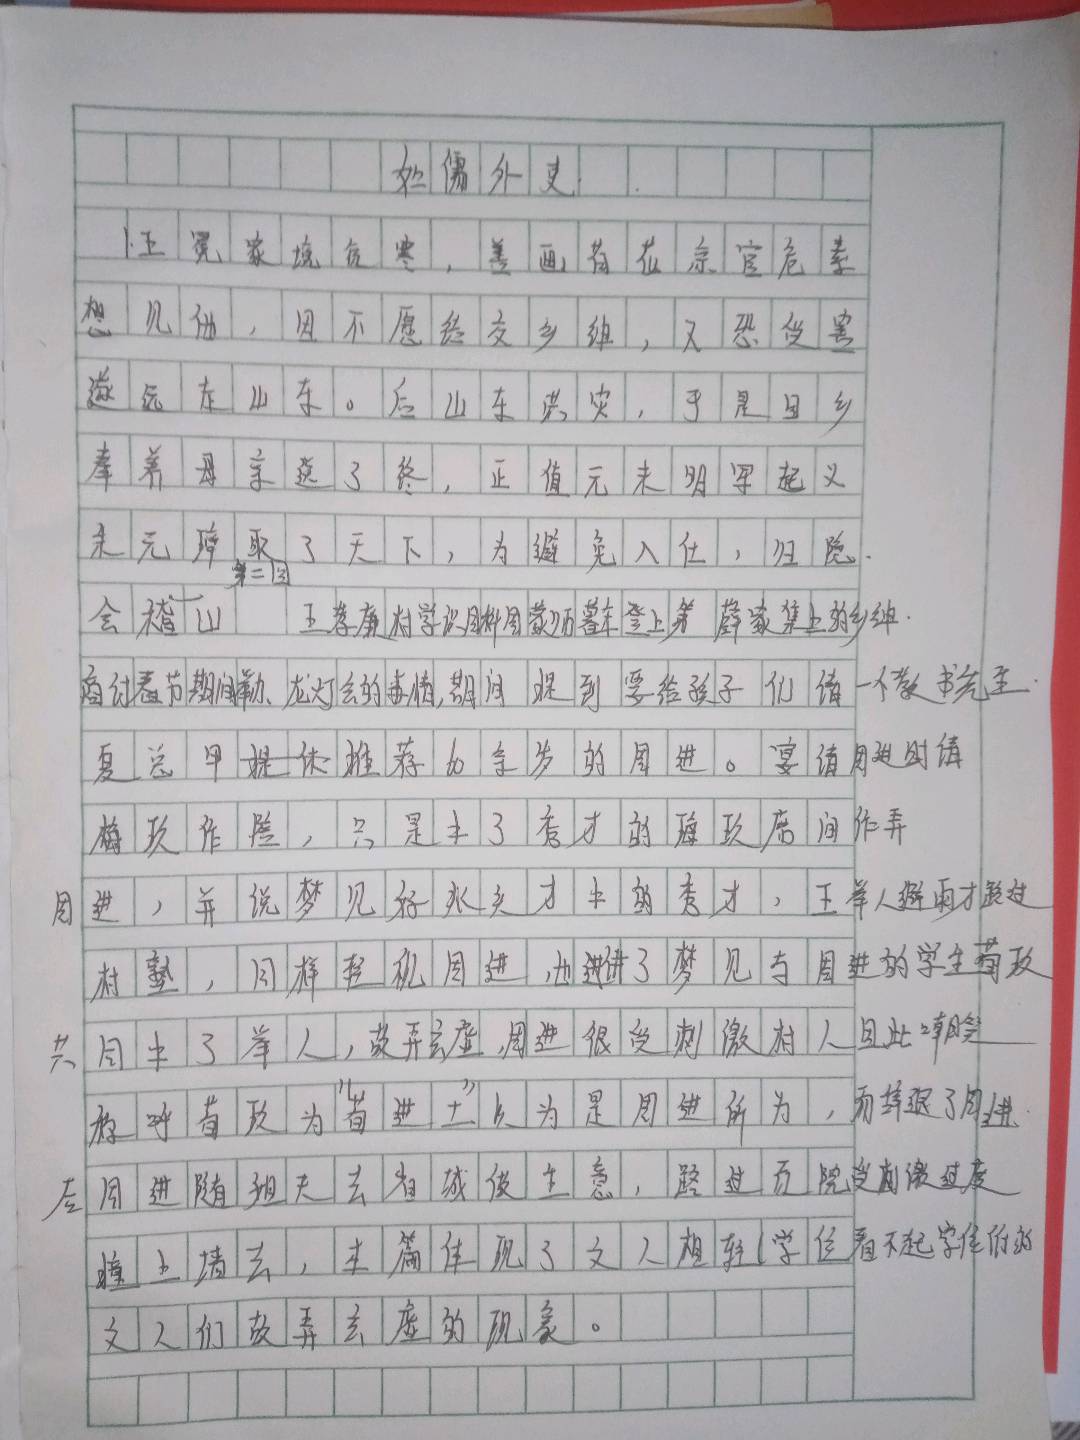 儒外史
1.王冕家境贫寒，善画荷花京官危素
想见他，因不愿结交乡绅，又恐受害
遂远走山东。后山东洪灾，于是回乡
奉养母亲送了终，正值元末明军起义
朱元璋取了天下，为避免入仕，归隐
会稽山 第二回 王孝廉村学识同科周蒙师暮年登上第 薛家集上的乡绅
商讨春节期间勒、龙灯会的事情，期间提到要给孩子们请一个教书先生
夏总甲提休推荐60余岁的周进。宴请周进时请
梅玖作陪，只是中了秀才的梅玖席间作弄
周进，并说梦见好兆头才中的秀才，王举人避雨才路过
村塾，同样轻视周进，也讲了梦见与周进的学生荀玖
共同中了举人，故弄玄虚，周进很受刺激村人因此嘲笑
称呼荀玖为“荀进士”以为是周进所为，而辞退了周进
后周进随姐夫去省城做生意，路过贡院受刺激过度
撞上墙去，本篇体现了文人相轻（学位看不起学位低的
文人们故弄玄虚的现象。